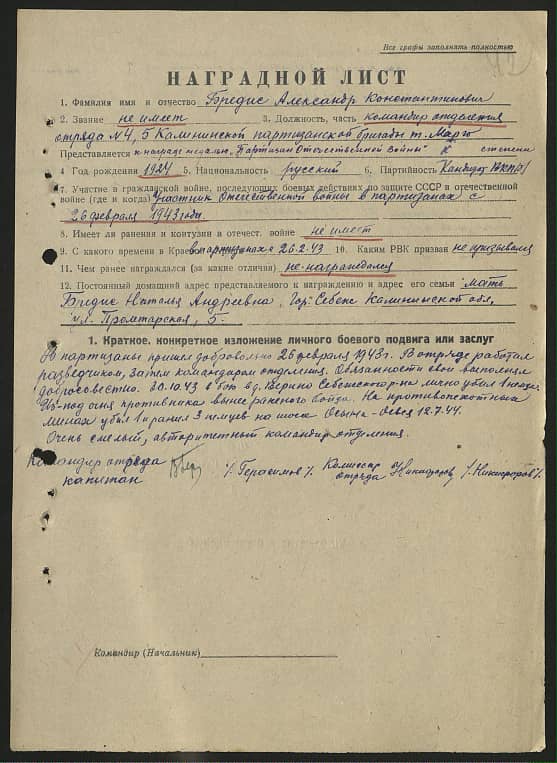 Все графы заполнять полностью
НАГРАДНОЙ ЛИСТ
1. Фамилия имя и отчество Бредис Александр Константинович
2. Звание не имеет 3. Должность, часть командир отделения
отряда №4, 5 Калининской партизанской бригады т. Марго
Представляется к награде медалью „Партизан Отечественной войны" II степени
4 Год рождения 1924 5. Национальность русский 6. Партийность Кандидат ВКП(б)
7. Участие в гражданской войне, последующих боевых действиях по защите СССР в отечественной
войне (где и когда) Участник Отечественной войны в партизанах с
26 февраля 1943 года
8. Имеет ли ранения и контузии в отечест. войне не имеет
9. С какого времени в Крас в партизанах с 26.2.43 10. Каким РВК призван не призывался
11. Чем ранее награждался (за какие отличия) не награждался
12. Постоянный домашний адрес представляемого к награждению и адрес его семьи Мать
Бредис Наталя Андреевна, Гор. Себеж Калининской обл,
ул. Пролетарская, 5.
1. Краткое, конкретное изложение личного боевого подвига или заслуг
В партизаны пришел добровольно 26 февраля 1943 г. В отряде работал
разведчиком, затем командиром отделения. Обязанности свои выполнял
добросовестно. 30.10.43 в бою в д. Себежского р-на лично убил 1 немца
Из-под огня противника вынес раненого бойца. На противопехотных
минах убил 1 и ранил 3 немцев на шоссе 12.7.44.
Очень смелый, авторитетный командир отделения.
Командир отряда
капитан /Герасимов/ Комиссар
отряда /Никифоров/
Командир (Начальник)